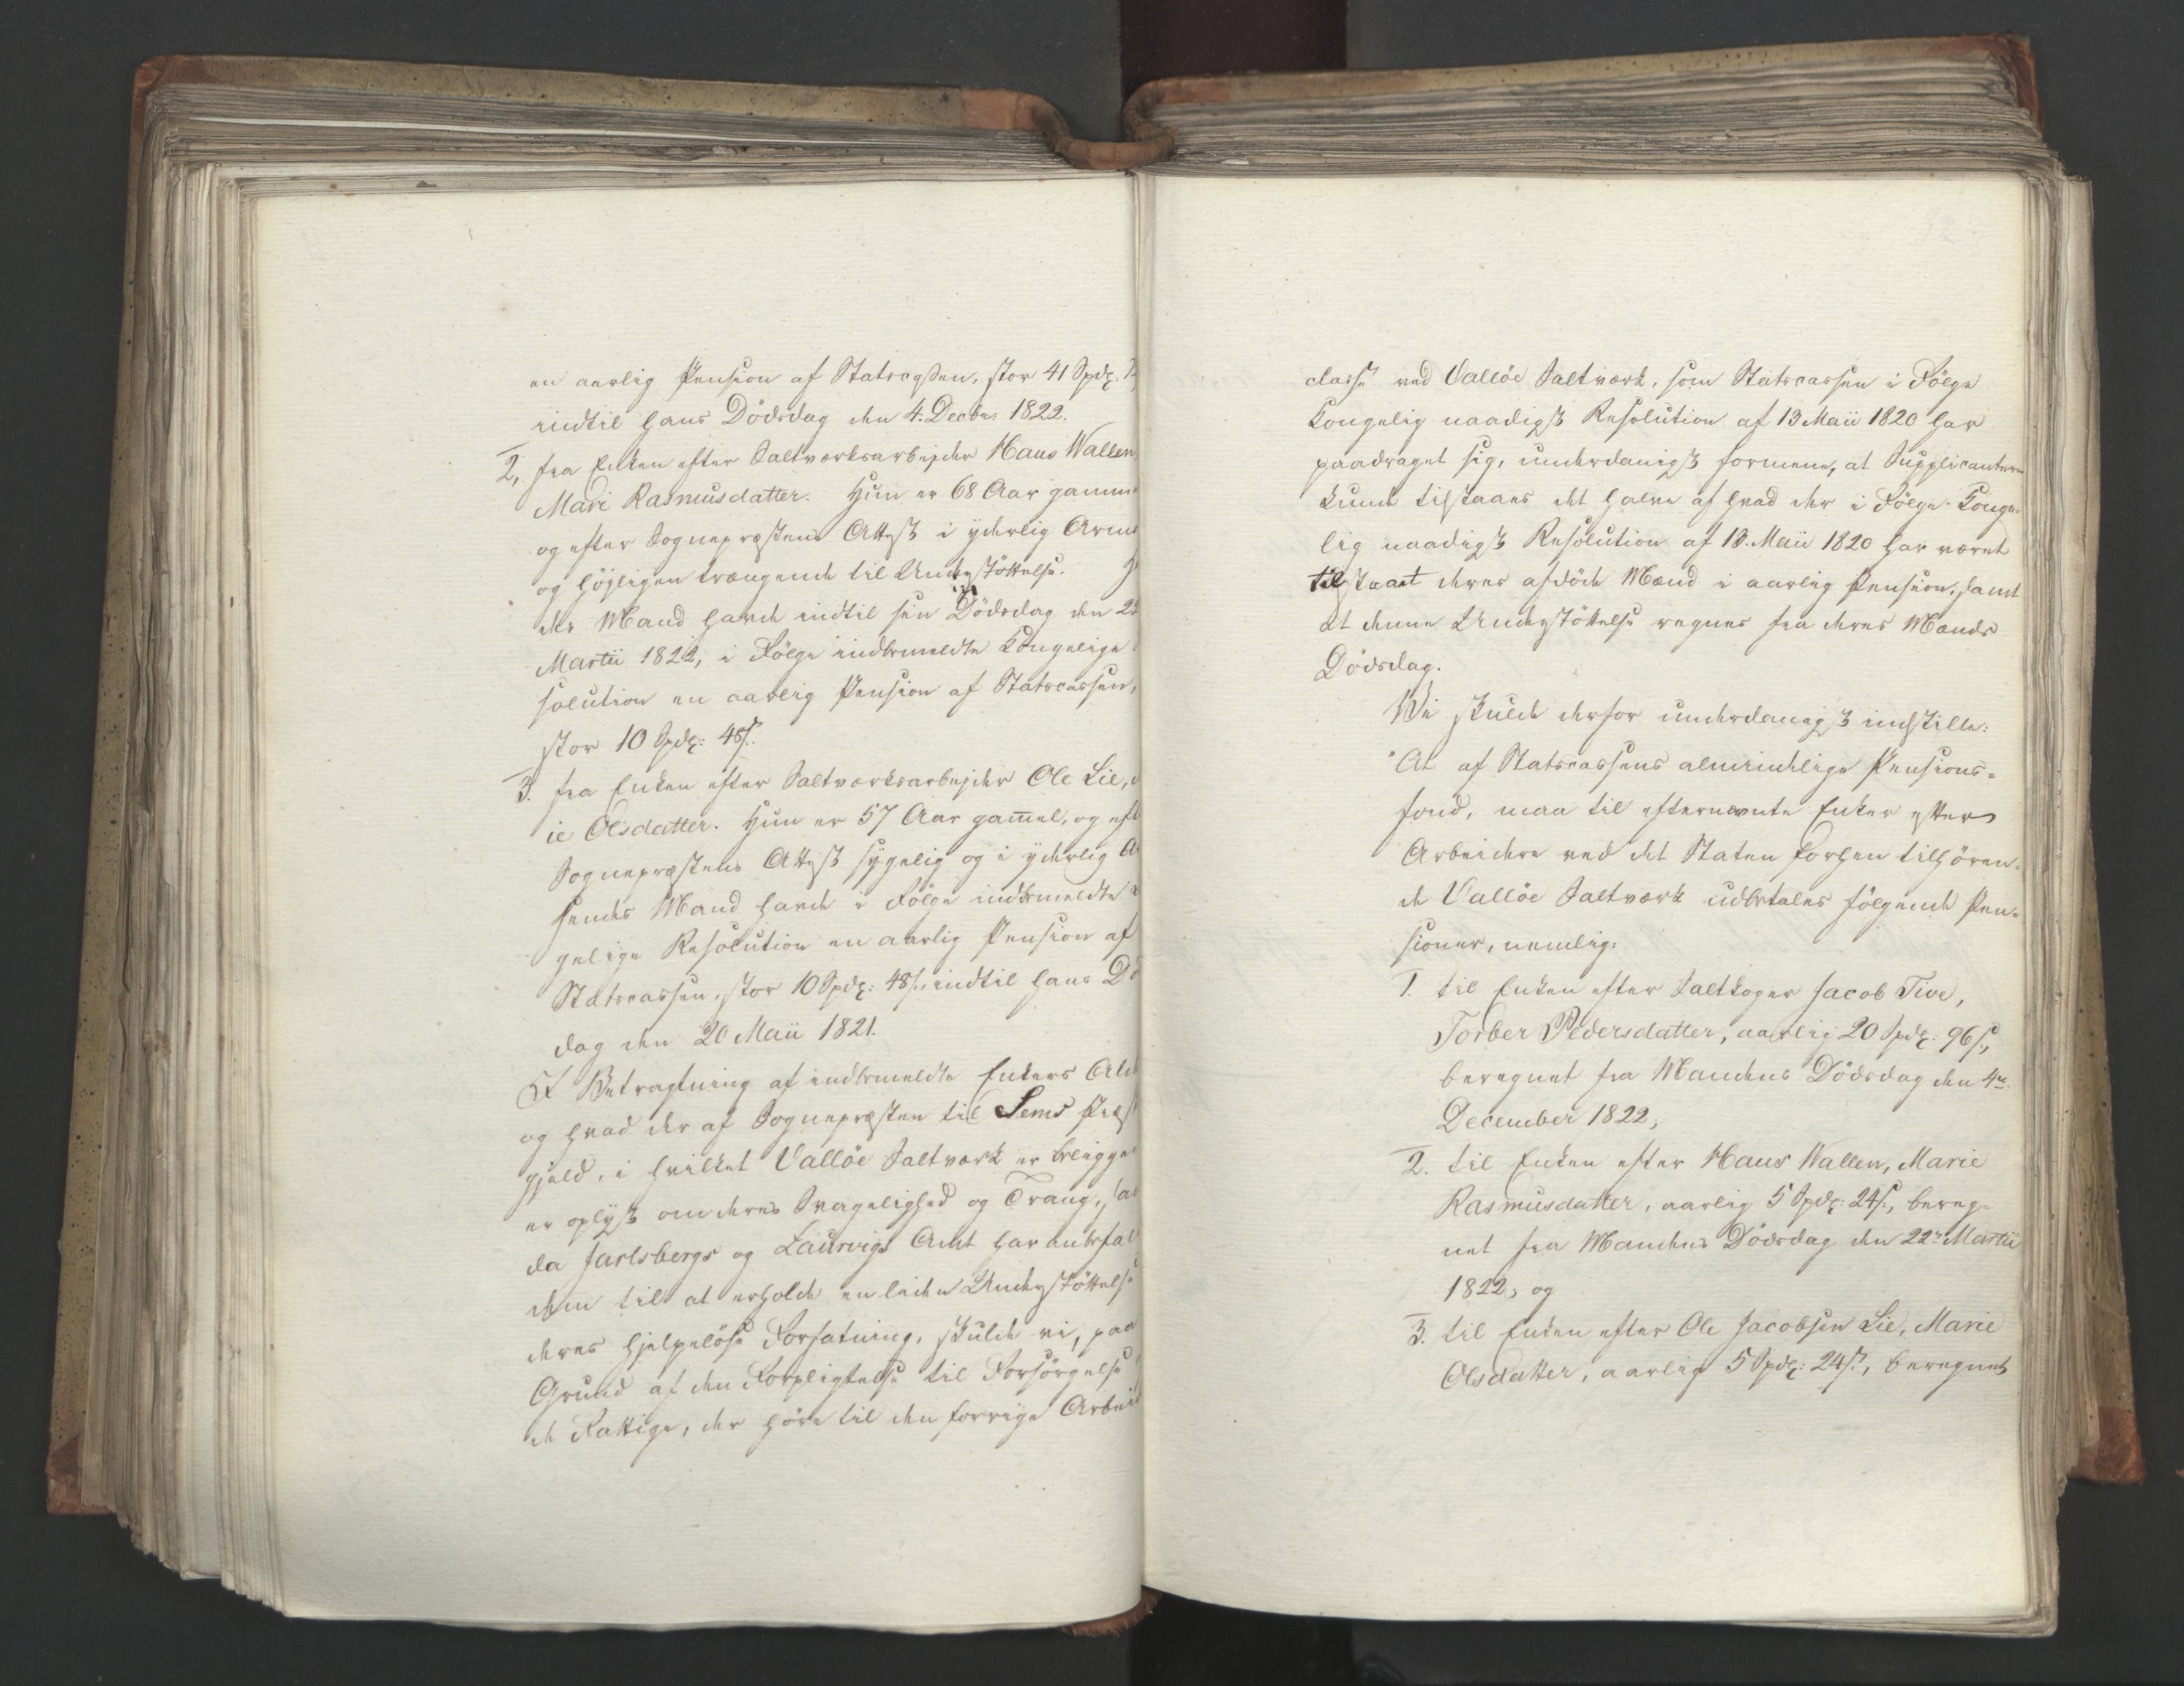 en aarlig Pension af Statscassen, stor 41 Spdlr:
indtil hans Dödsdag den 4. Decbr: 1822.
2, fra Enken efter Saltværksarbejder Hans Wallen,
Mari Rasmusdatter. Hun er 68 Aar gamm
og efter Sognepræstens Attest i yderlig Arm
og höjligen trængende til Understöttelse.
des Mand havde indtil sin Dödsdag den 22
Martii 1822, i Fölge indbemeldte Kongelige
solution en aarlig Pension af Statscassen,
stor 10 Spdlr: 48 s.
3. fra Enken efter Saltværksarbejder Ole Lie,
ie Olsdatter. Hun er 57 Aar gam̄el, og eft
Sognepræstens Attest sygelig og i yderlig A
Hendes Mand havde i Fölge indbemeldte
gelige Resolution en aarlig Pension af
Statscassen, stor 10 Spdlr: 48 s., indtil hans Dö
dag den 20 Maii 1821.
I Betragtning af indbemeldte Enkers Ald
og hvad der af Sognepræsten til Sems Præst
gjeld, i hvilket Vallöe Saltværk er beligge
er oplyst om deres Svagelighed og Trang, sa
da Jarlsbergs og Laurvigs Amt har anbefal
dem til at erholde en liden Understöttelse
deres hjelpelöse Forfatning, skulde vi, paa
Grund af den Forpligtelse til Forsörgelse
de Fattige, der höre til den forrige Arbeid
classe ved Vallöe Saltværk, som Statscassen i Fölge
Kongelig naadigst Resolution af 13 Maii 1820 har
paadraget sig, underdanigst formene, at Supplicanterne
kunde tilstaaes det halve af hvad der i Fölge Konge-
lig naadigst Resolution af 13. Maii 1820 har været
tilstaaet deres afdöde Mænd i aarlig Pension, samt
at denne Understöttelse regnes fra deres Mænds
Dödsdag.
Vi skulde derfor underdanigst indstille:
"At af Statscassens almindelige Pensions-
fond, maa til efternævnte Enker efter
Arbeidere ved det Staten forhen tilhören-
de Vallöe Saltværk udbetales fölgende Pen-
sioner, nemlig:
1. til Enken efter Saltkoger Jacob Five,
Torber Pedersdatter, aarlig 20 Spdlr: 96 s.,
beregnet fra Mandens Dödsdag den 4de
December 1822;
2. til Enken efter Hans Wallen, Marie
Rasmusdatter, aarlig 5 Spdlr: 24 s., bereg-
net fra Mandens Dödsdag den 22de Martii
1822; og
3. til Enken efter Ole Jacobsen Lie, Marie
Olsdatter, aarlig 5 Spdlr: 24 s., beregnet